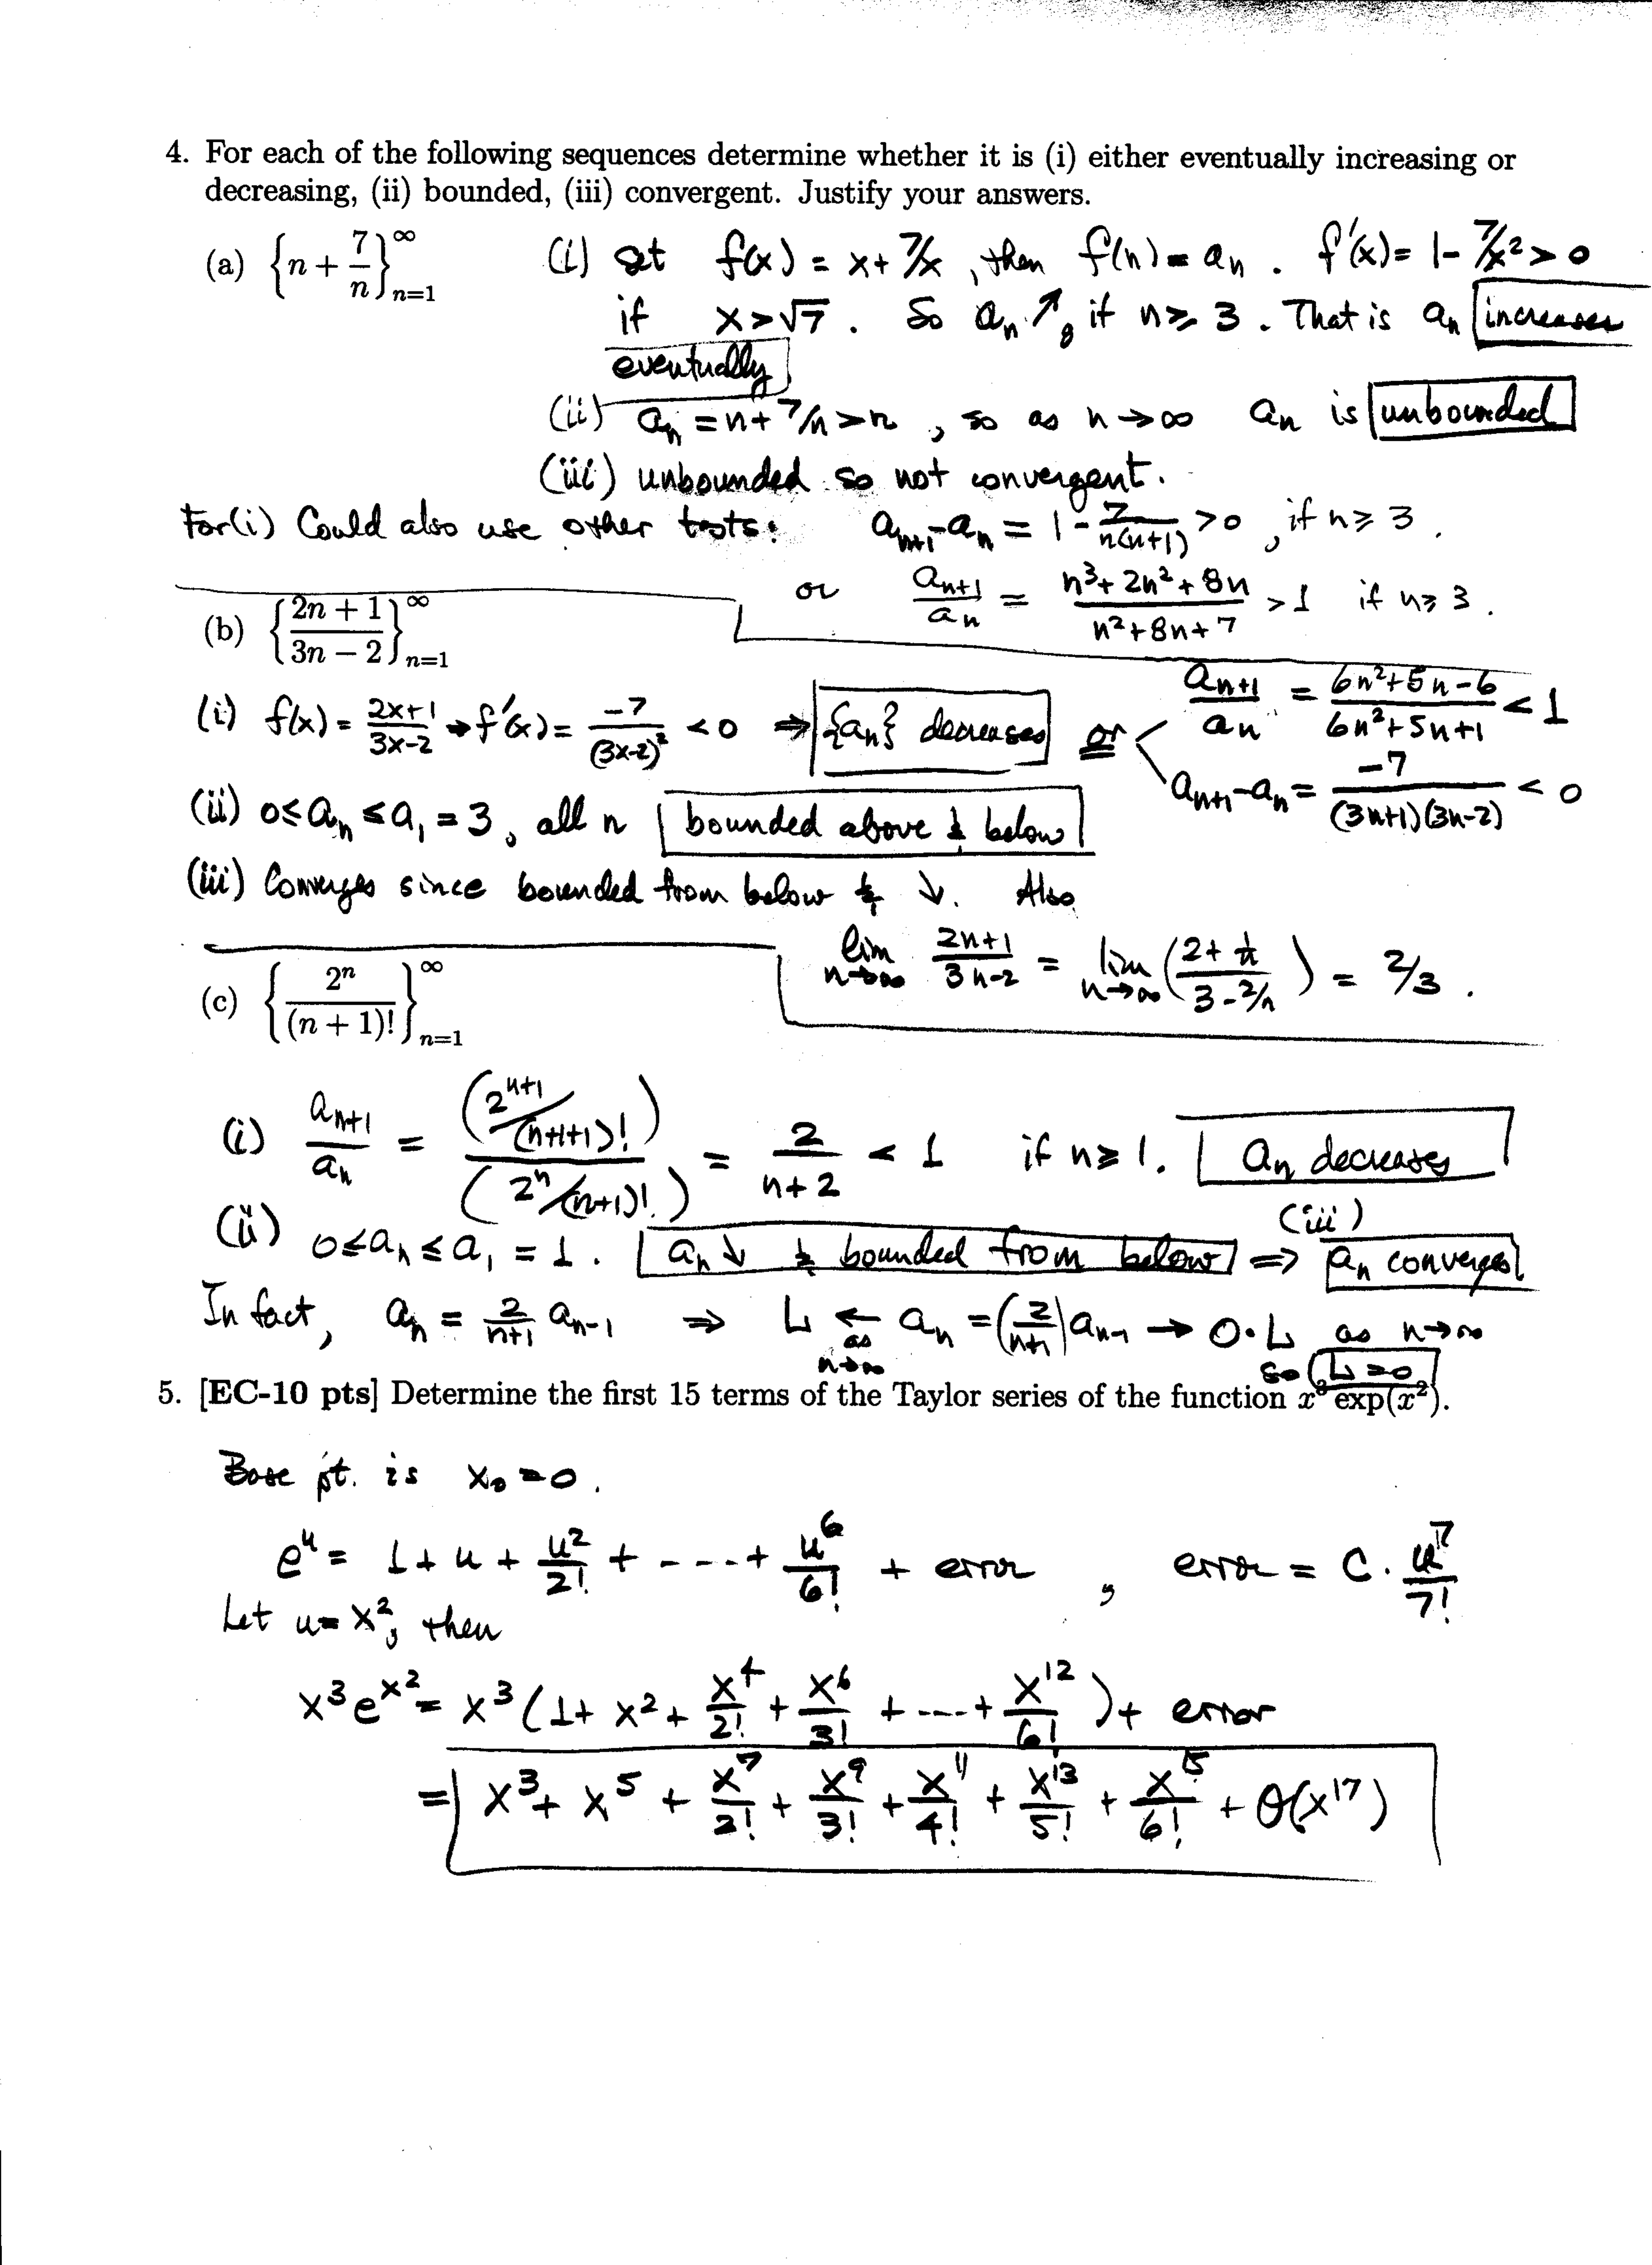 4. For each of the following sequences determine whether it is (i) either eventually increasing or
decreasing, (ii) bounded, (iii) convergent. Justify your answers.
(a) {n + 7/n}_{n=1}^∞ (i) set f(x) = x + 7/x, then f(n) = a_n. f'(x) = 1 - 7/x² > 0
if x > √7. So a_n ↗, if n ≥ 3. That is a_n increases
eventually
(ii) a_n = n + 7/n > n, so as n → ∞ a_n is unbounded
(iii) unbounded so not convergent.
For (i) Could also use other tests: a_{n+1} - a_n = 1 - 7/(n(n+1)) > 0, if n ≥ 3.
or a_{n+1}/a_n = (n³ + 2n² + 8n)/(n² + 8n + 7) > 1 if n ≥ 3.
(b) {(2n + 1)/(3n − 2)}_{n=1}^∞
(i) f(x) = (2x+1)/(3x-2) → f'(x) = -7/(3x-2)² < 0 ⇒ {a_n} decreases or a_{n+1}/a_n = (6n² + 5n - 6)/(6n² + 5n + 1) < 1
a_{n+1} - a_n = -7/((3n+1)(3n-2)) < 0
(ii) 0 ≤ a_n ≤ a_1 = 3, all n bounded above & below
(iii) Converges since bounded from below & ↓. Also
lim_{n→∞} (2n+1)/(3n-2) = lim_{n→∞} ((2 + 1/n)/(3 - 2/n)) = 2/3.
(c) {2^n/(n + 1)!}_{n=1}^∞
(i) a_{n+1}/a_n = (2^{n+1}/(n+1+1)!)/(2^n/(n+1)!) = 2/(n+2) < 1 if n ≥ 1. a_n decreases
(ii) 0 ≤ a_n ≤ a_1 = 1. a_n ↓ & bounded from below ⇒ (iii) a_n converges
In fact, a_n = 2/(n+1) a_{n-1} ⇒ L ← as n→∞ a_n = (2/(n+1)) a_{n-1} → 0·L as n→∞
so L = 0
5. [EC-10 pts] Determine the first 15 terms of the Taylor series of the function x³ exp(x²).
Base pt. is x_0 = 0.
e^u = 1 + u + u²/2! + ----+ u^6/6! + error, error = C · u^7/7!
Let u = x², then
x³e^{x²} = x³(1 + x² + x⁴/2! + x⁶/3! + ----+ x^12/6!) + error
= x³ + x⁵ + x⁷/2! + x⁹/3! + x^11/4! + x^13/5! + x^15/6! + O(x^17)